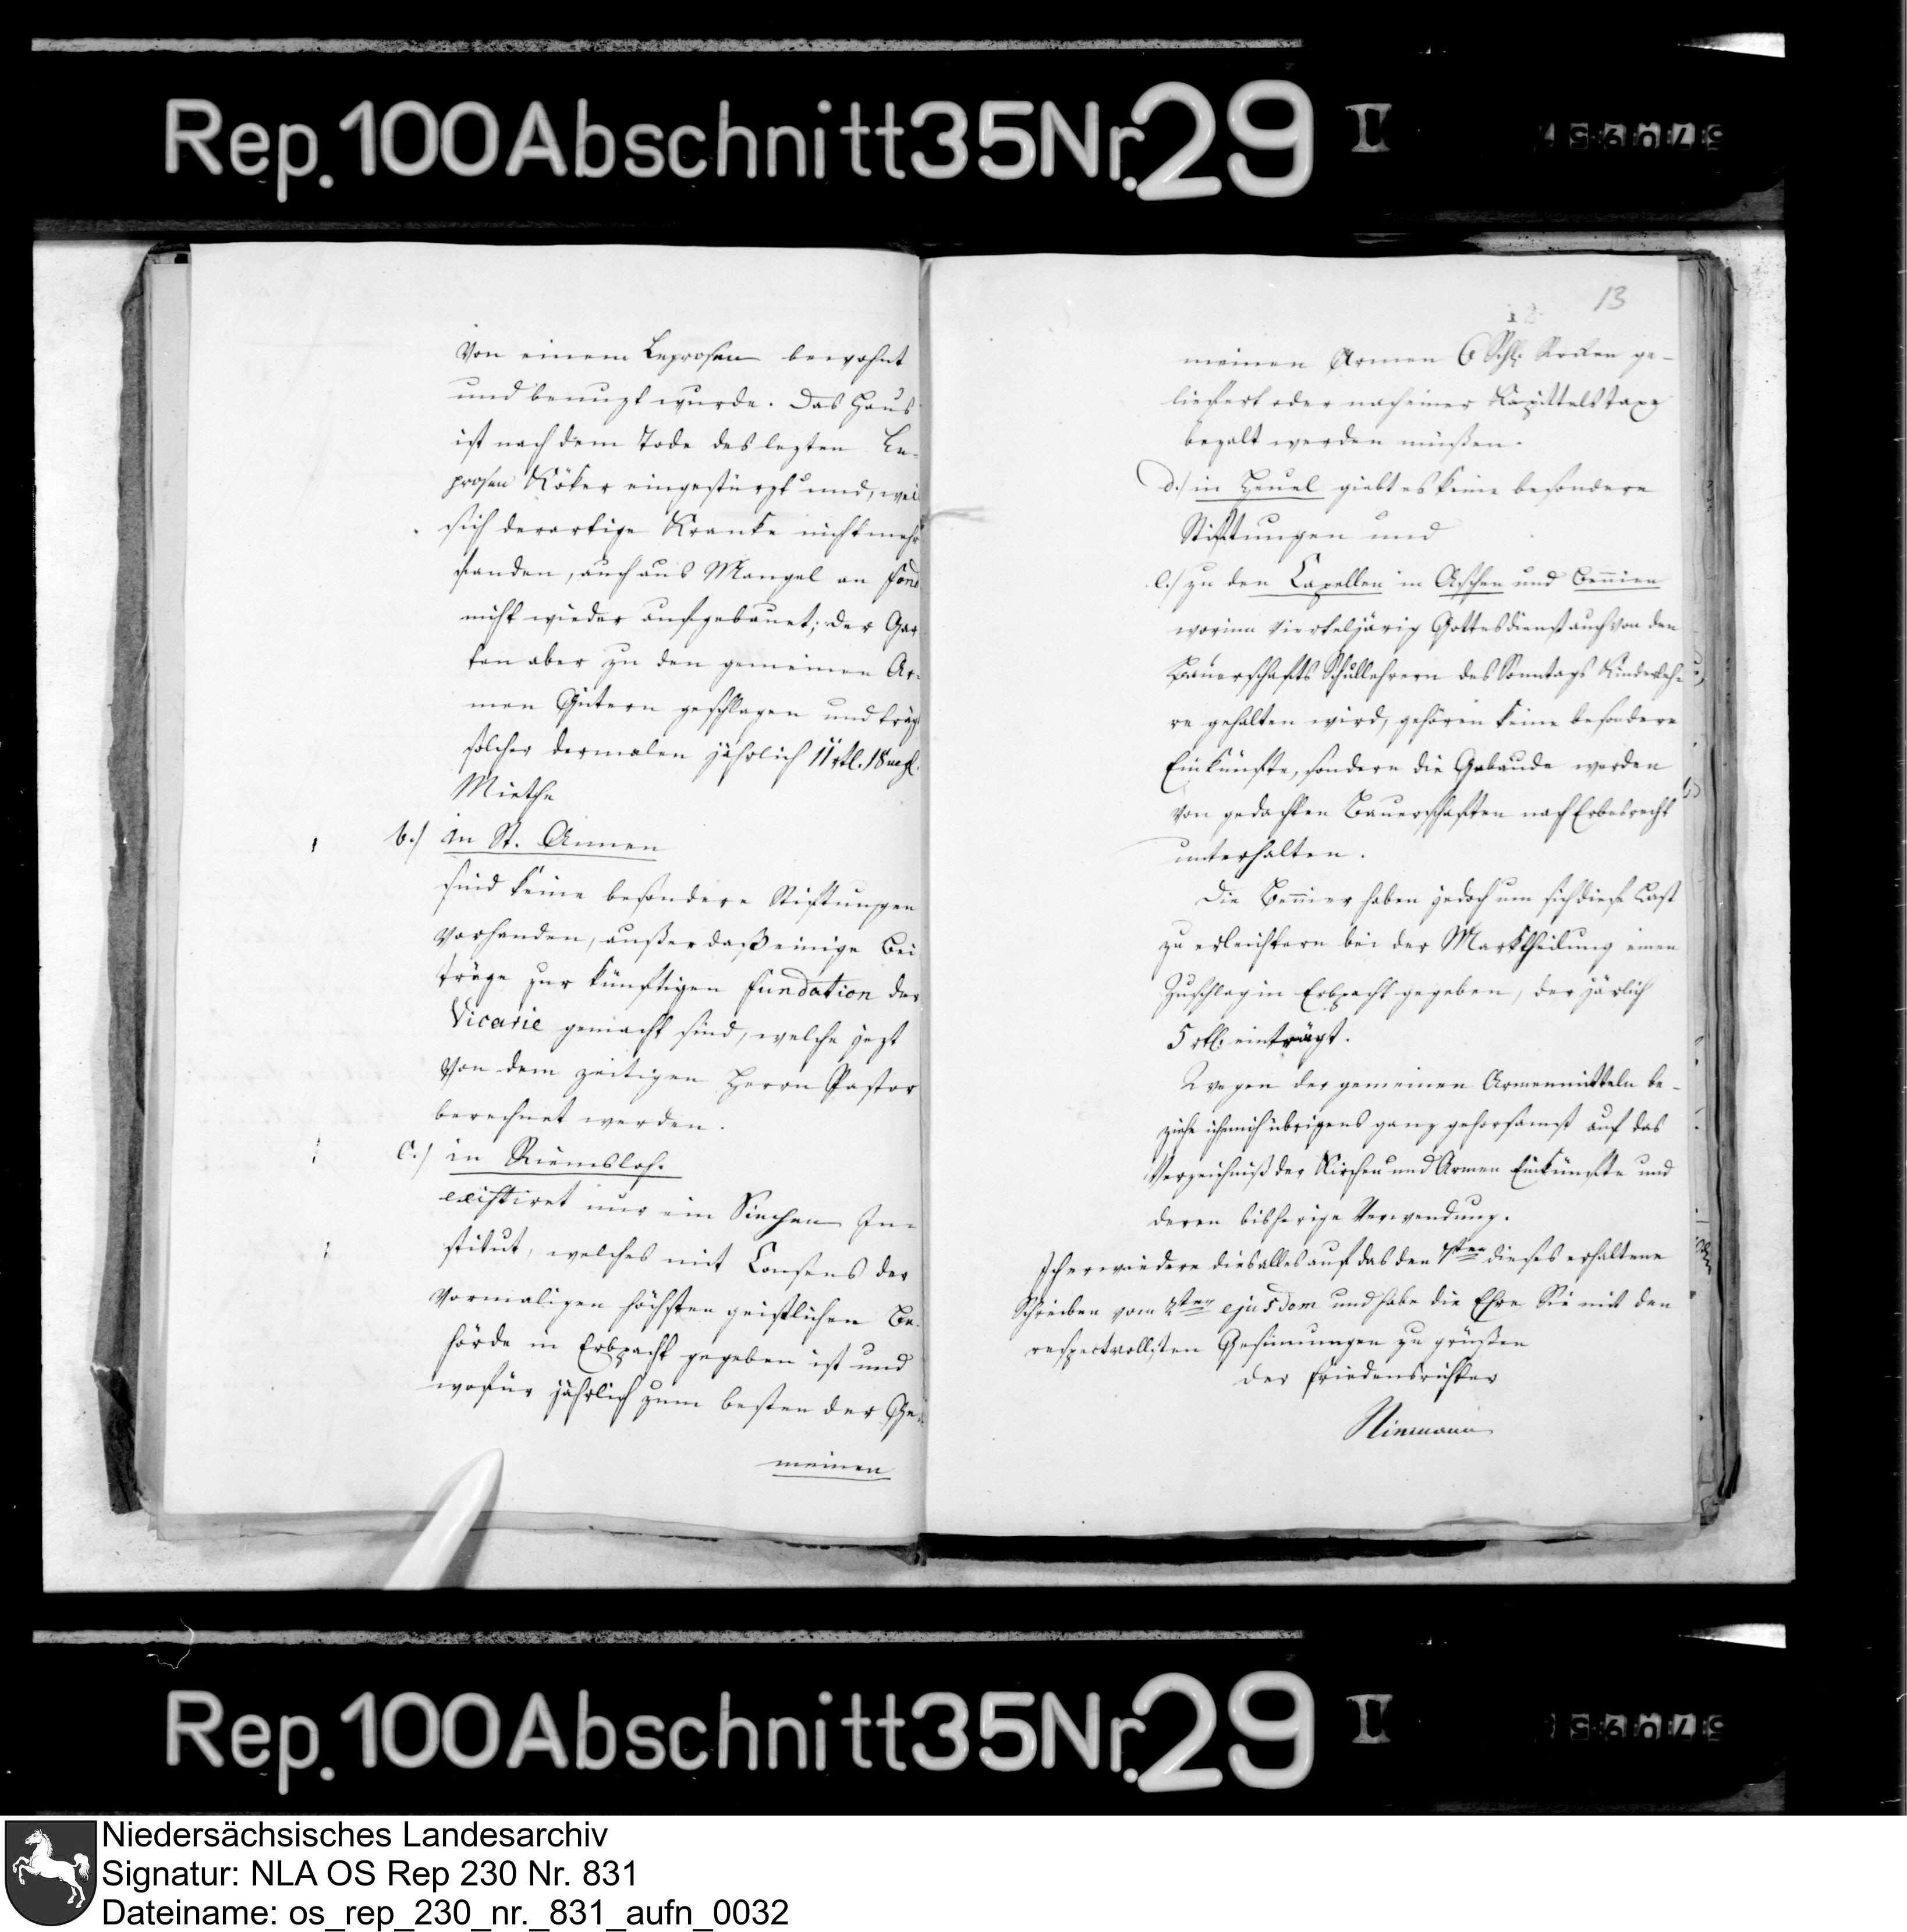 Rep. 100 Abschnitt 35 Nr. 29 I
von einem Leprosen bewohnt
und benuzt wurde. Das Haus
ist nach dem Tode des lezten Le-
prosen Köker eingestürzt und, weil
sich derartige Kranke nicht mehr
fanden, auch aus Mangel an fond
nicht wieder aufgebauet; der Gar-
ten aber zu den gemeinen Ar-
men Gütern geschlagen und trägt
solcher dermalen jährlich 11 rtl. 18 mgl.
Miethe
b.) in St. Annen
sind keine besondere Stiftungen
vorhanden, außer daß einige Bei
träge zur künftigen fundation der
Vicarie gemacht sind, welche jezt
von dem zeitigen Herrn Pastor
berechnet werden.
c.) in Riemsloh.
existiret nur ein Siechen In-
stitut, welches mit Consens der
vormaligen höchsten geistlichen Be-
hörde in Erbpacht gegeben ist und
wofür jährlich zum besten der Ge-
meinen
13
meinen Armen 6 Schl. Rocken ge-
liefert oder nach einer Kapittelstaxe
bezalt werden müßen.
d.) in Heuel giebt es keine besondere
Stiftungen und
e.) zu den Capellen in Aschen und Bennien
worinn vierteljärig Gottesdienst auch von den
Bauerschafts Schullehrern des Sonntags Kinderleh-
re gehalten wird, gehören keine besondere
Einkünfte, sondern die Gebäude werden
von gedachten Bauerschaften nach Erbesrecht
unterhalten.
Die Bennier haben jedoch um sich diese Last
zu erleichtern bei der Marktheilung einen
Zuschlag in Erbpacht gegeben, der järlich
5 rtl. einträgt.
Wegen der gemeinen Armenmitteln be-
ziehe ich mich übrigens ganz gehorsamst auf das
Verzeichniß der Kirchen und Armen Einkünfte und
deren bisherige Verwendung.
Ich erwiedere dies alles auf das den 7ten dieses erhaltene
Schreiben vom 2ten ejusdem und habe die Ehre Sie mit den
respectvollsten Gesinnungen zu grüßen
der Friedensrichter
Niemann
Rep. 100 Abschnitt 35 Nr. 29 I
Niedersächsisches Landesarchiv
Signatur: NLA OS Rep 230 Nr. 831
Dateiname: os_rep_230_nr._831_aufn_0032